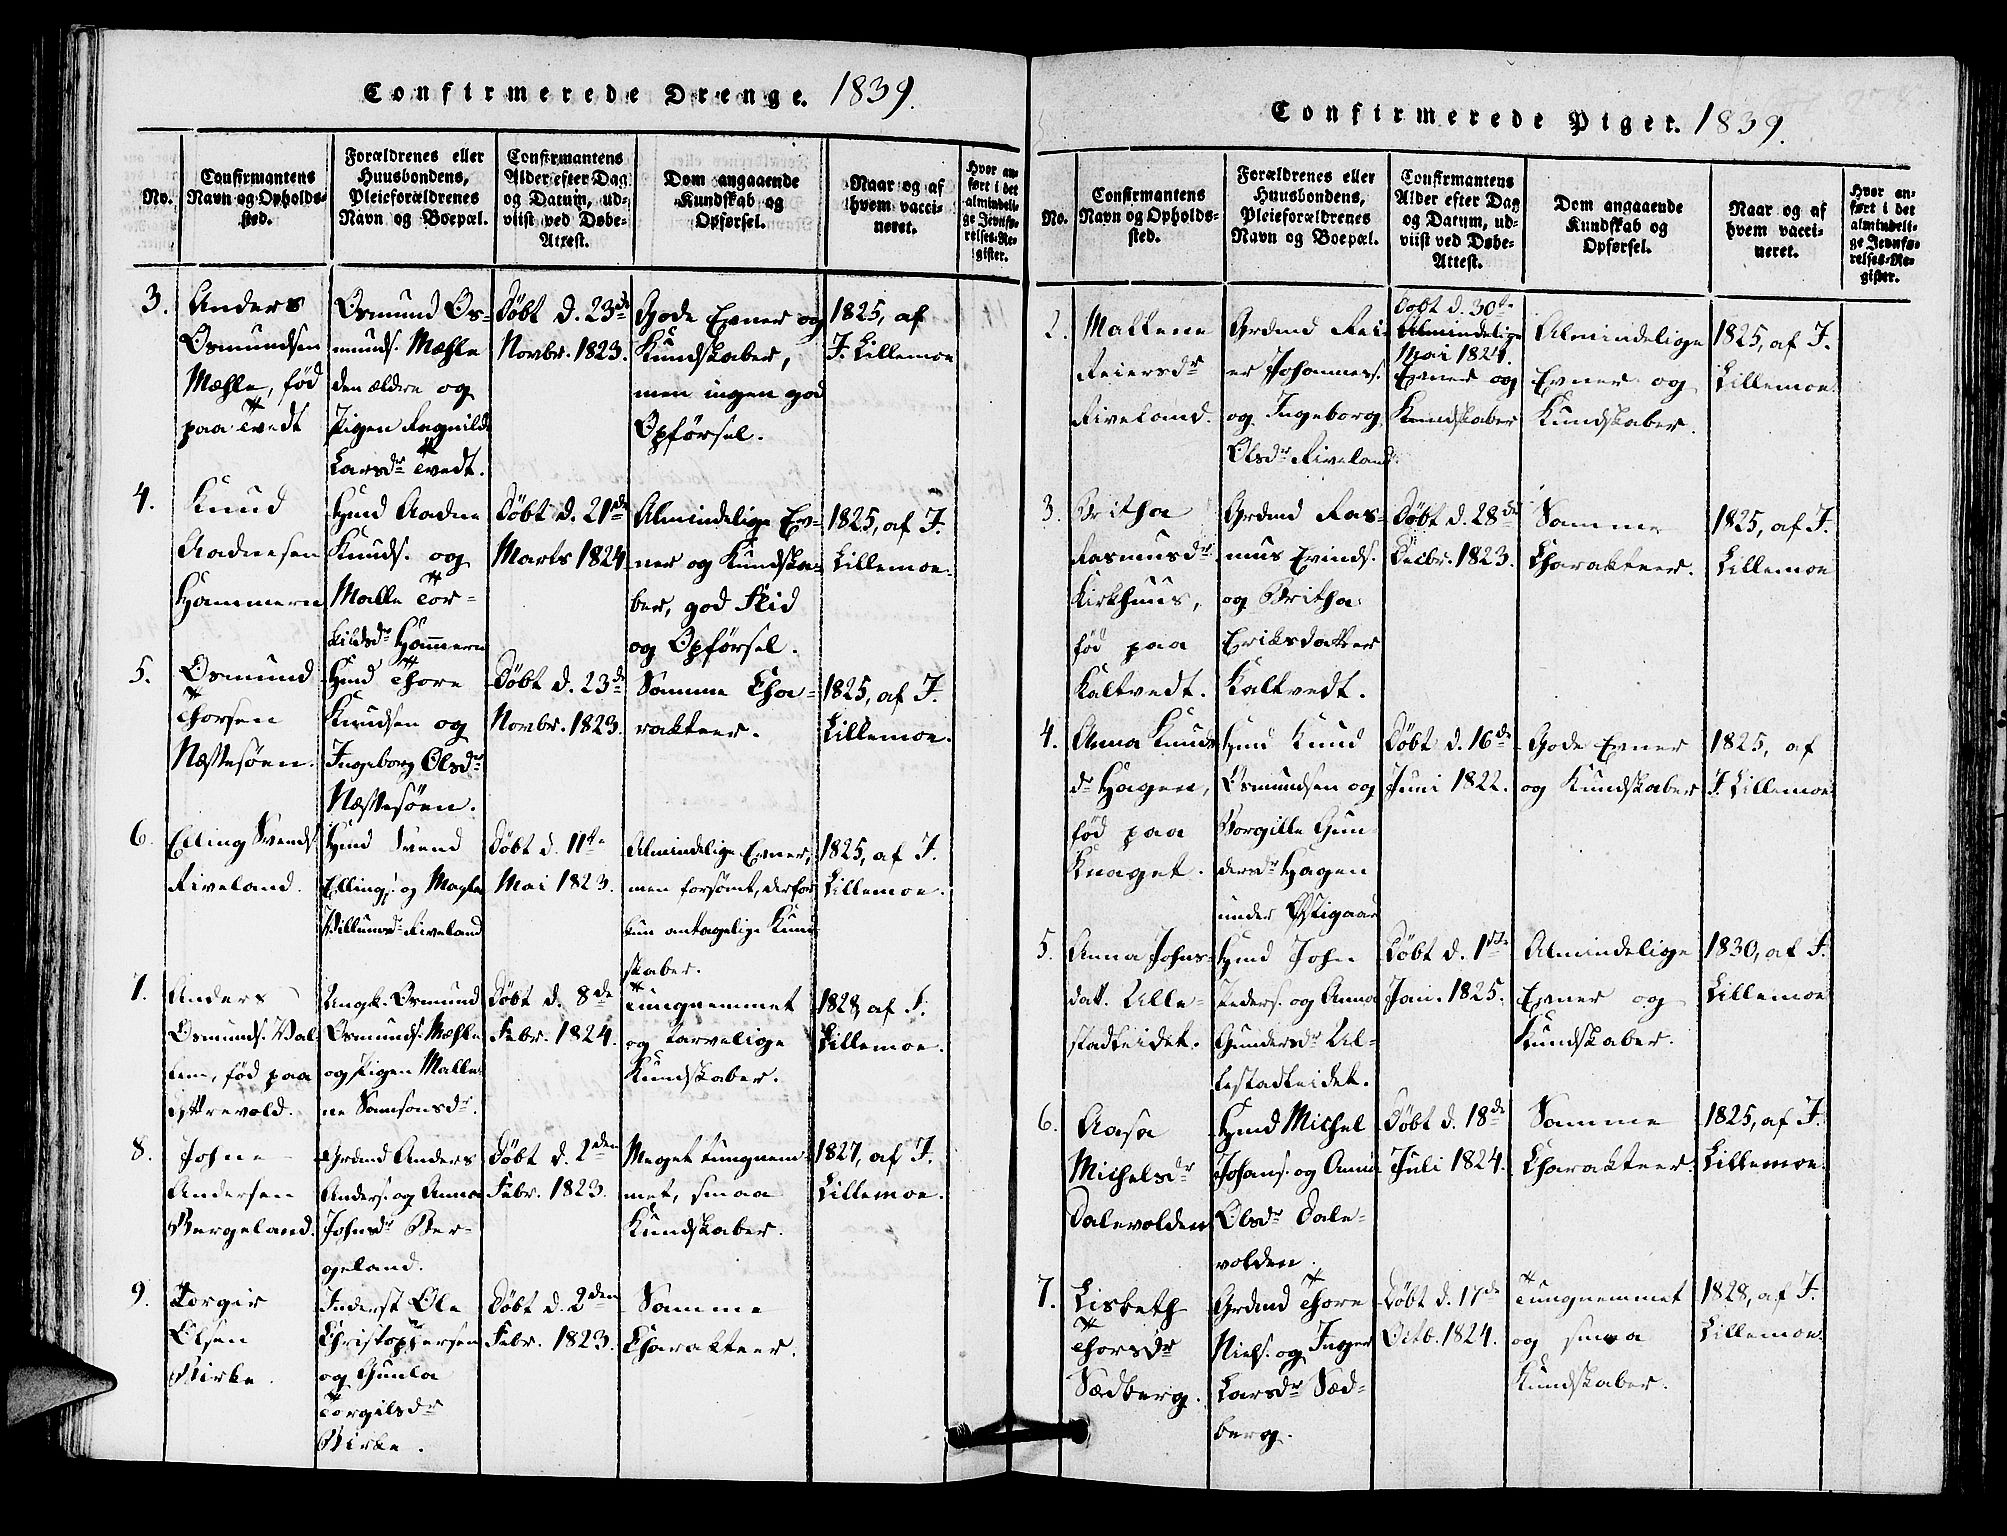 Confirmerede Drenge. 1839.
No.
Confirmantens
Navn og Opholds-
sted.
Forældrenes eller
Huusbondens,
Pleieforældrenes
Navn og Boepæl.
Confirmantens
Alder efter Dag
og Datum, ud-
viist ved Døbe-
Attest.
Dom angaaende
Kundskab og
Opførsel.
Naar og af
hvem vacci-
neret.
Hvor an-
ført i det
almindeli-
ge Jevnfø-
relses-Re-
gister.
3.
Anders
Osmundsen
Mæhle, fød
paa Tvedt
Osmund Os-
munds. Mæhle
den ældre og
Pigen Ragnilde
Larsdr Tvedt.
Döbt d. 23de
Novbr. 1823.
Gode Evner og
Kundskaber,
men ingen god
Opförsel.
1825, af
J. Lillemoe
4.
Knud
Aadnesen
Hammern
Hmd Aadne
Knuds. og
Malle Tor-
kildsdr Hammern
Döbt d. 21de
Marts 1824
Almindelige Ev-
ner og Kundska-
ber, god Flid
og Opförsel.
1825, af J.
Lillemoe.
5.
Osmund
Thorsen
Næstesöen.
Hmd Thore
Knudsen og
Ingeborg Olsdr
Næstesöen.
Döbt d. 23de
Novbr. 1823.
Samme Cha-
rakteer.
1825, af J.
Lillemoe.
6.
Elling Svends.
Riveland.
Hmd Svend
Ellings. og Magla
Villumsdr Riveland
Döbt d. 11te
Mai 1823.
Almindelige Evner,
men forsömt, derfor
kun antagelige Kund-
skaber.
1825, af J.
Lillemoe.
7.
Anders
Osmunds. Val-
lem, fød paa
Ungk. Osmund
Osmunds. Mæhle
og Pigen Malle-
ne Samsonsdr.
Döbt d. 8de
Febr. 1824.
Tungnemmet
og tarvelige
Kundskaber.
1828, af J.
Lillemoe.
8.
Johne
Andersen
Bergeland.
Grdmd Anders
Anders. og Anna
Johnsdr Ber-
geland.
Döbt d. 2den
Febr. 1823.
Meget tungnem-
met, smaa
Kundskaber.
1827, af J.
Lillemoe.
9.
Torgir
Olsen
Birke.
Inderst Ole
Christophersen
og Gunla
Torgilsdr
Birke.
Döbt d. 2den
Febr. 1823.
Samme
Charakteer.
Confirmerede Piger. 1839.
No.
Confirmantens
Navn og Opholds-
sted.
Forældrenes eller
Huusbondens,
Pleieforældrenes
Navn og Boepæl.
Confirmantens
Alder efter Dag
og Datum, ud-
viist ved Døbe-
Attest.
Dom angaaende
Kundskab og
Opførsel.
Naar og af
hvem vacci-
neret.
Hvor an-
ført i det
almindeli-
ge Jevnfø-
relses-Re-
gister.
2.
Mallene
Reiersdr
Riveland.
Grdmd Rei-
er Johannes.
og Ingeborg
Olsdr Riveland.
Döbt d. 30te
Almindelige
Mai 1824.
Evner og
Kundskaber
Almindelige
Evner og
Kundskaber.
1825, af J.
Lillemoe.
3.
Britha
Rasmusdr
Kirkhuus,
fød paa
Kaltvedt.
Grdmd Ras-
mus Evinds.
og Britha
Eriksdatter
Kaltvedt.
Döbt d. 28de
Decbr. 1823.
Samme
Charakteer.
1825, af J.
Lillemoe
4.
Anna Knuds
dr Hagen,
fød paa
Knaget.
Hmd Knud
Osmundsen og
Borgille Gun-
dersdr Hagen
under Østigaar
Döbt d. 16de
Juni 1822.
Gode Evner
og Kundskaber
1825, af
J. Lillemoe
5.
Anna Johns-
datt. Ulle-
stadteidet.
Hmd John
Peders. og Anna
Gundersdr Ul-
lestadteidet.
Döbt d. 1ste
Jan. 1825.
Almindelige
Evner og
Kundskaber.
1830, af J.
Lillemoe
6.
Aasa
Michelsdr
Dalevolden
Hmd Michel
Johans. og Anna
Olsdr Dale-
volden.
Döbt d. 18de
Juli 1824.
Samme
Charakteer.
1825, af J.
Lillemoe.
7.
Lisbeth
Thorsdr
Sædberg.
Grdmd Thore
Niels. og Inger
Larsdr Sæd-
berg.
Döbt d. 17de
Octb. 1824.
Tungnemmet
og smaa
Kundskaber.
1828, af J.
Lillemoe.